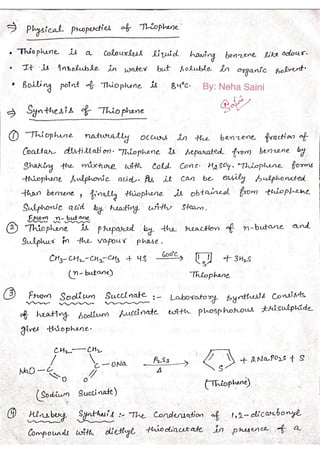 ⇒ Physical properties of Thiophene
• Thiophene is a colourless liquid having benzene like odour.
• It is insoluble in water but soluble in organic solvent.
• Boiling point of Thiophene is 84°C. By: Neha Saini
⇒ Synthesis of Thiophene
① Thiophene naturally occurs in the benzene fraction of
Coaltar distillation. Thiophene is separated from benzene by
Shaking the mixture with cold conc. H2SO4. Thiophene forms
thiophene sulphonic acid. As it can be easily sulphonated
than benzene, finally thiophene is obtained from thiophene
Sulphonic acid by heating with steam.
From n-butane
② Thiophene is prepared by the reaction of n-butane and
Sulphur in the vapour phase.
CH3-CH2-CH2-CH3 + 4S 600°C → + 3H2S
(n-butane) Thiophene
③ From Sodium Succinate :- Laboratory synthesis consists
of heating sodium succinate with phosphorous trisulphide
gives thiophene.
CH2 — CH2
NaO-C C-ONa P2S3 → Δ S + 2NaPO2S + S
O O
(Sodium Succinate) (Thiophene)
④ Hinsberg Synthesis :- The Condensation of 1,2-dicarbonyl
Compounds with diethyl thiodiacetate in presence of a